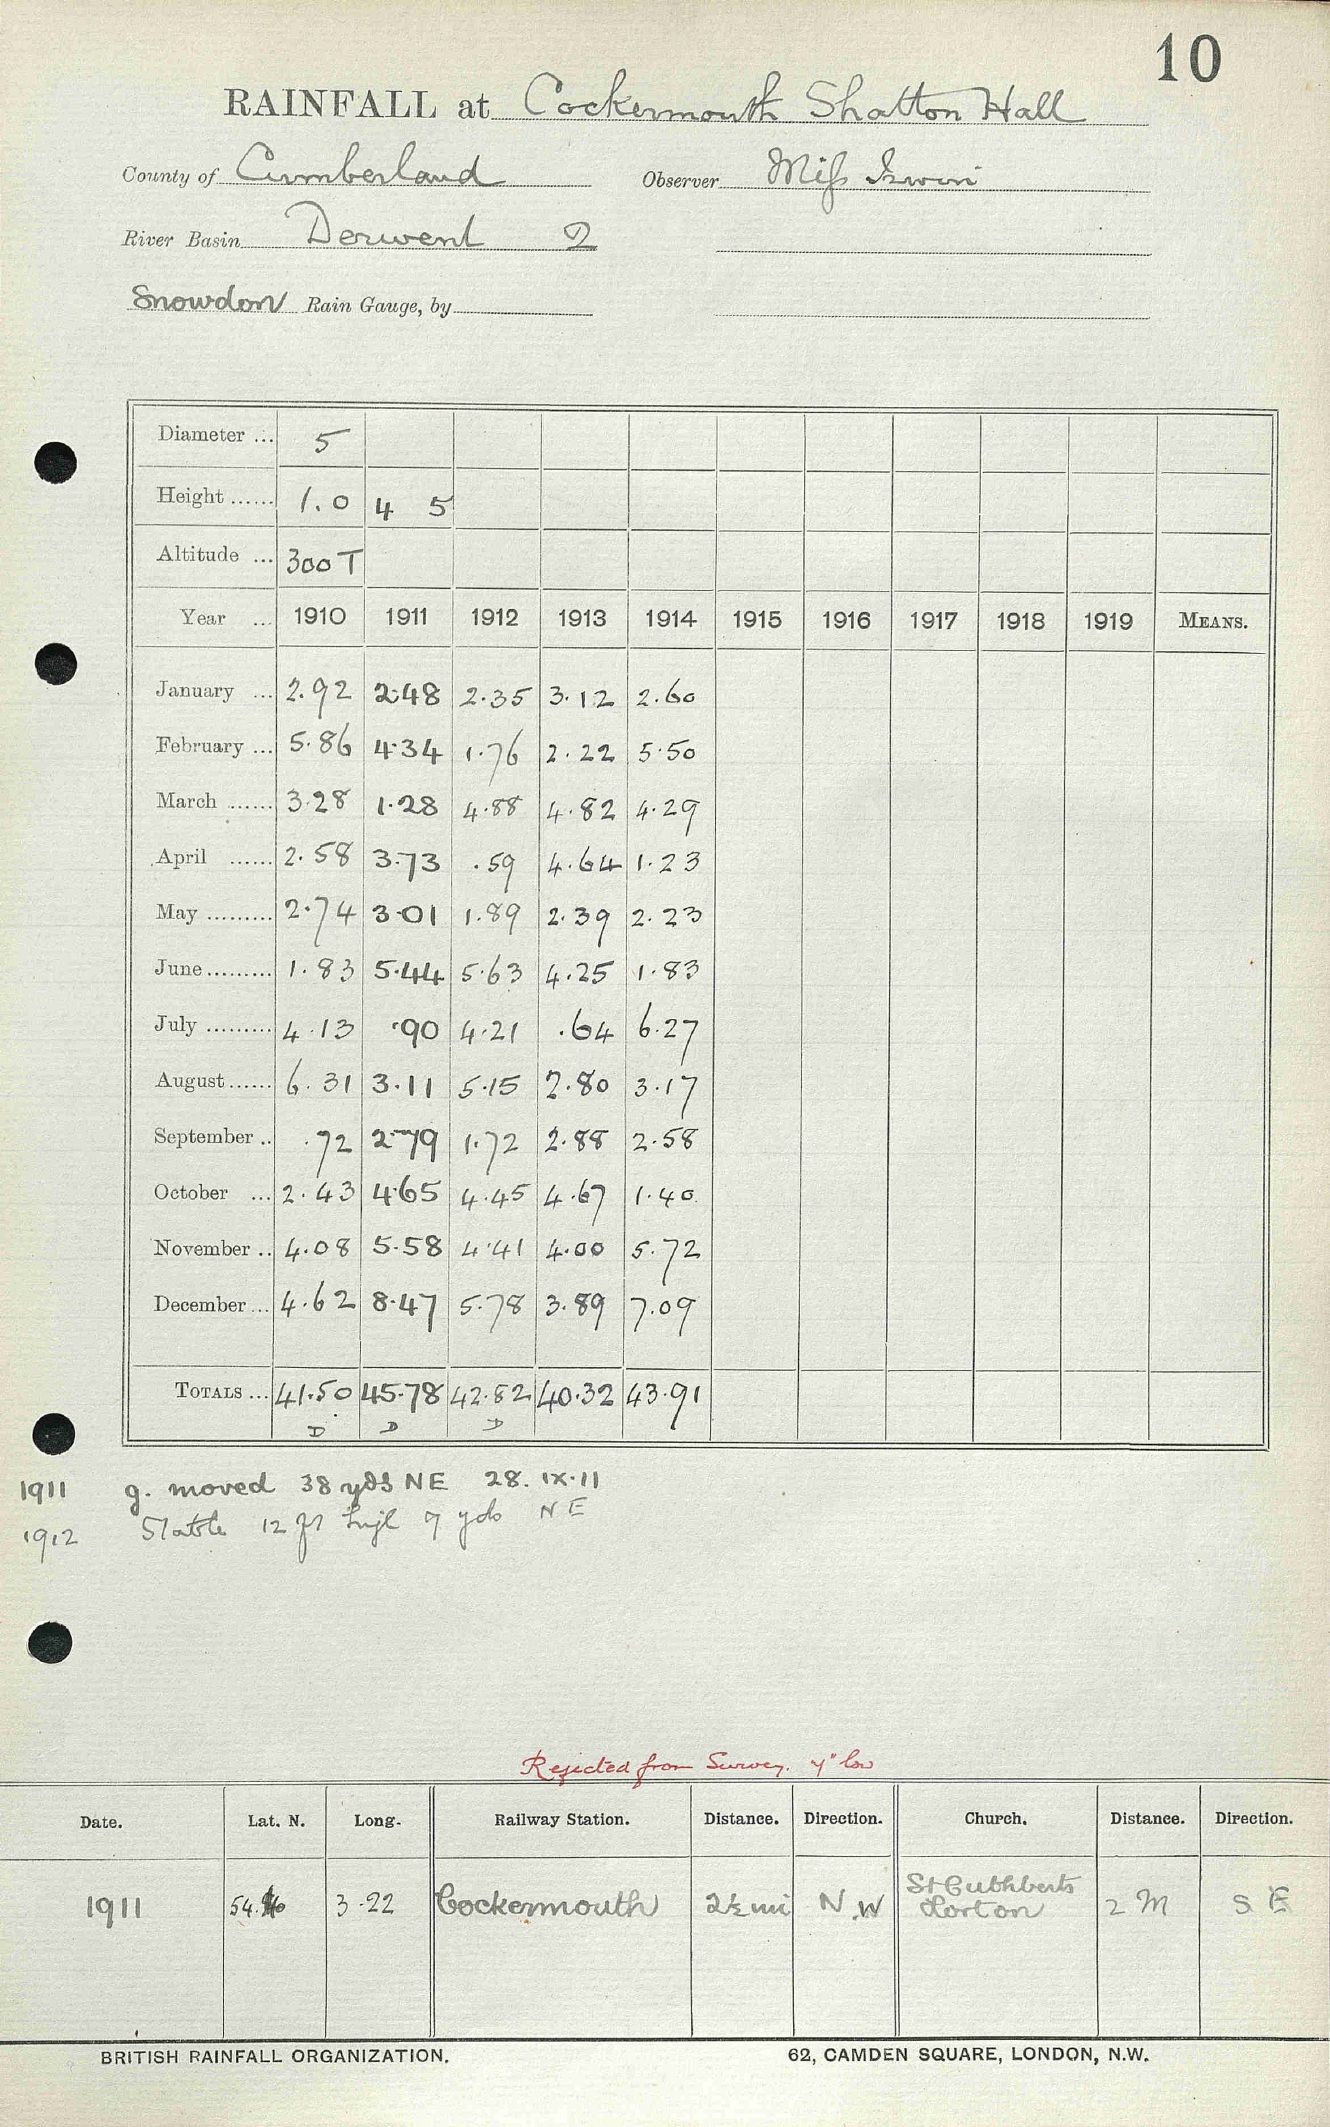 10
RAINFALL at Cockermouth Shatton Hall
County of Cumberland Observer Miss Irwin
River Basin Derwent 2
Snowdon Rain Gauge, by
Diameter ... 5
Height ...... 1.0 4 5
Altitude ... 300 T
Year ... 1910 1911 1912 1913 1914 1915 1916 1917 1918 1919 MEANS.
January ... 2.92 2.48 2.35 3.12 2.60
February ... 5.86 4.34 1.76 2.22 5.50
March ...... 3.28 1.28 4.88 4.82 4.29
April ...... 2.58 3.73 .59 4.64 1.23
May ......... 2.74 3.01 1.89 2.39 2.23
June ......... 1.83 5.44 5.63 4.25 1.83
July ......... 4.13 .90 4.21 .64 6.27
August ...... 6.31 3.11 5.15 2.80 3.17
September .. .72 2.79 1.72 2.88 2.58
October ... 2.43 4.65 4.45 4.67 1.40
November .. 4.08 5.58 4.41 4.00 5.72
December ... 4.62 8.47 5.78 3.89 7.09
TOTALS ... 41.50 45.78 42.82 40.32 43.91
D D D
1911 g. moved 38 yds NE 28.IX.11
1912 Stable 12 ft high 7 yds NE
Rejected from Survey. 4" low
Date. Lat. N. Long. Railway Station. Distance. Direction. Church. Distance. Direction.
1911 54. 3.22 Cockermouth 2½ mi N.W St Cuthberts 2 M S E
Lorton
BRITISH RAINFALL ORGANIZATION. 62, CAMDEN SQUARE, LONDON, N.W.